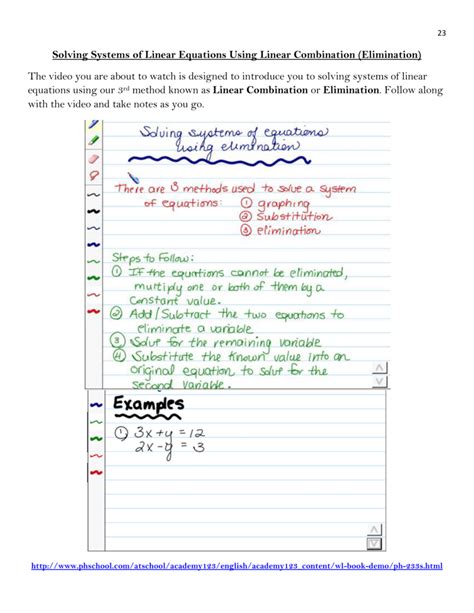 23
Solving Systems of Linear Equations Using Linear Combination (Elimination)
The video you are about to watch is designed to introduce you to solving systems of linear
equations using our 3rd method known as Linear Combination or Elimination. Follow along
with the video and take notes as you go.
Solving systems of equations
using elimination
There are 3 methods used to solve a system
of equations: ① graphing
② substitution
③ elimination
Steps to Follow:
① If the equations cannot be eliminated,
multiply one or both of them by a
constant value.
② Add/Subtract the two equations to
eliminate a variable
③ Solve for the remaining variable
④ Substitute the known value into an
original equation to solve for the
second variable.
Examples
① 3x+y=12
2x-y=3
http://www.phschool.com/atschool/academy123/english/academy123_content/wl-book-demo/ph-233s.html